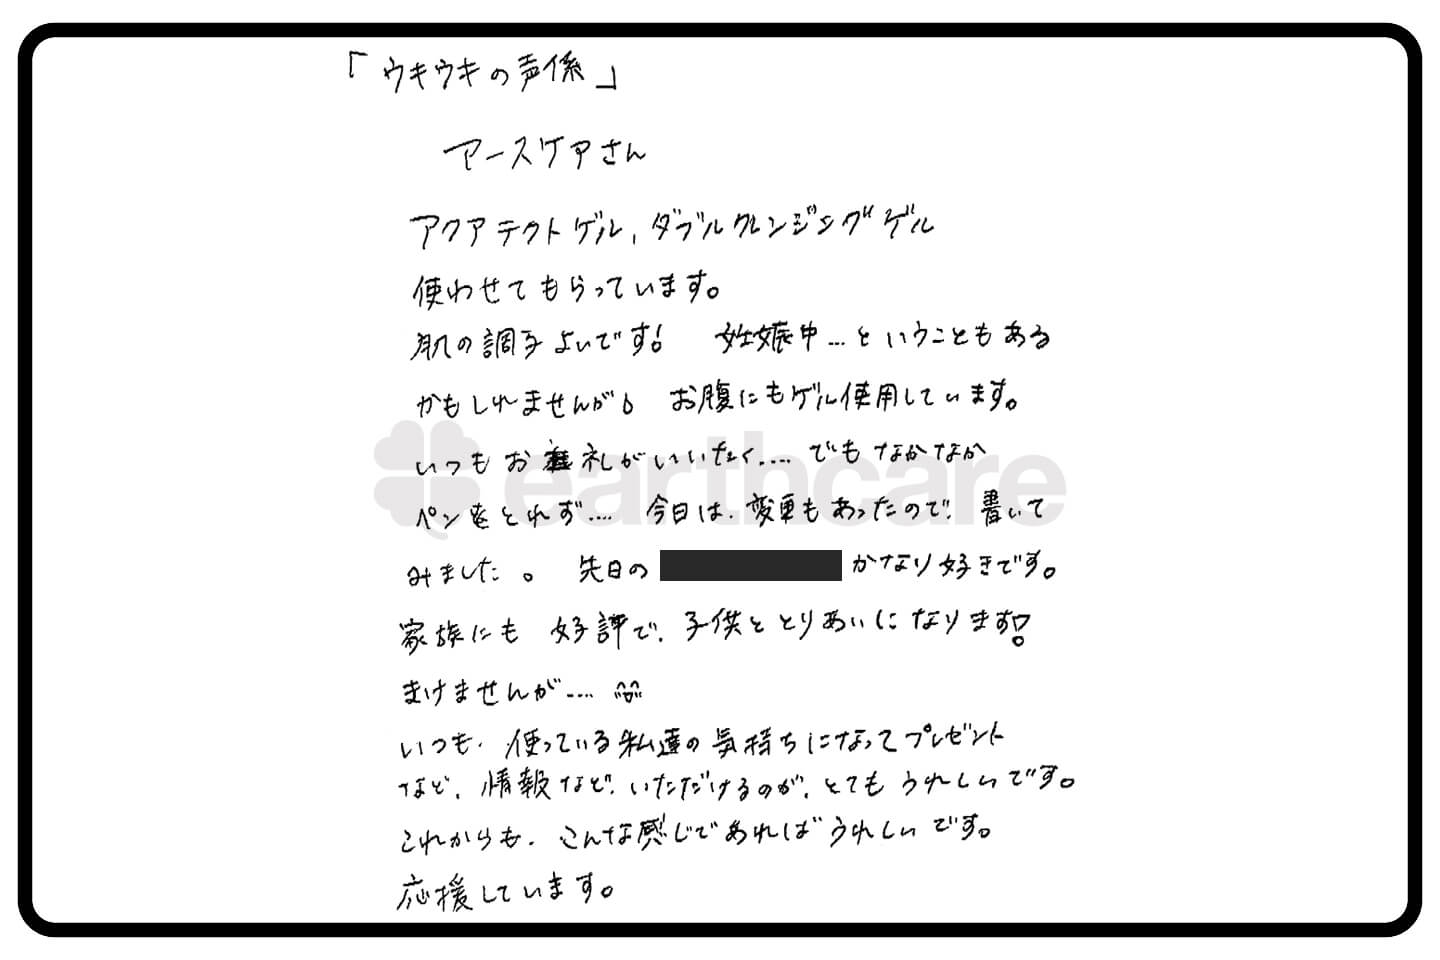 「ウキウキの声係」
アースケアさん
アクアテクトゲル、ダブルクレンジングゲル
使わせてもらっています。
肌の調子よいです! 妊娠中…ということもある
かもしれませんが。 お腹にもゲル使用しています。
いつもお礼がいいたく…. でもなかなか
ペンをとれず…. 今日は、変更もあったので、書いて
みました。 先日の かなり好きです。
家族にも 好評で、子供ととりあいになります!
まけませんが….
いつも、使っている私達の気持ちになってプレゼント
など、情報など、いただけるのが、とてもうれしいです。
これからも、こんな感じであればうれしいです。
応援しています。
earthcare